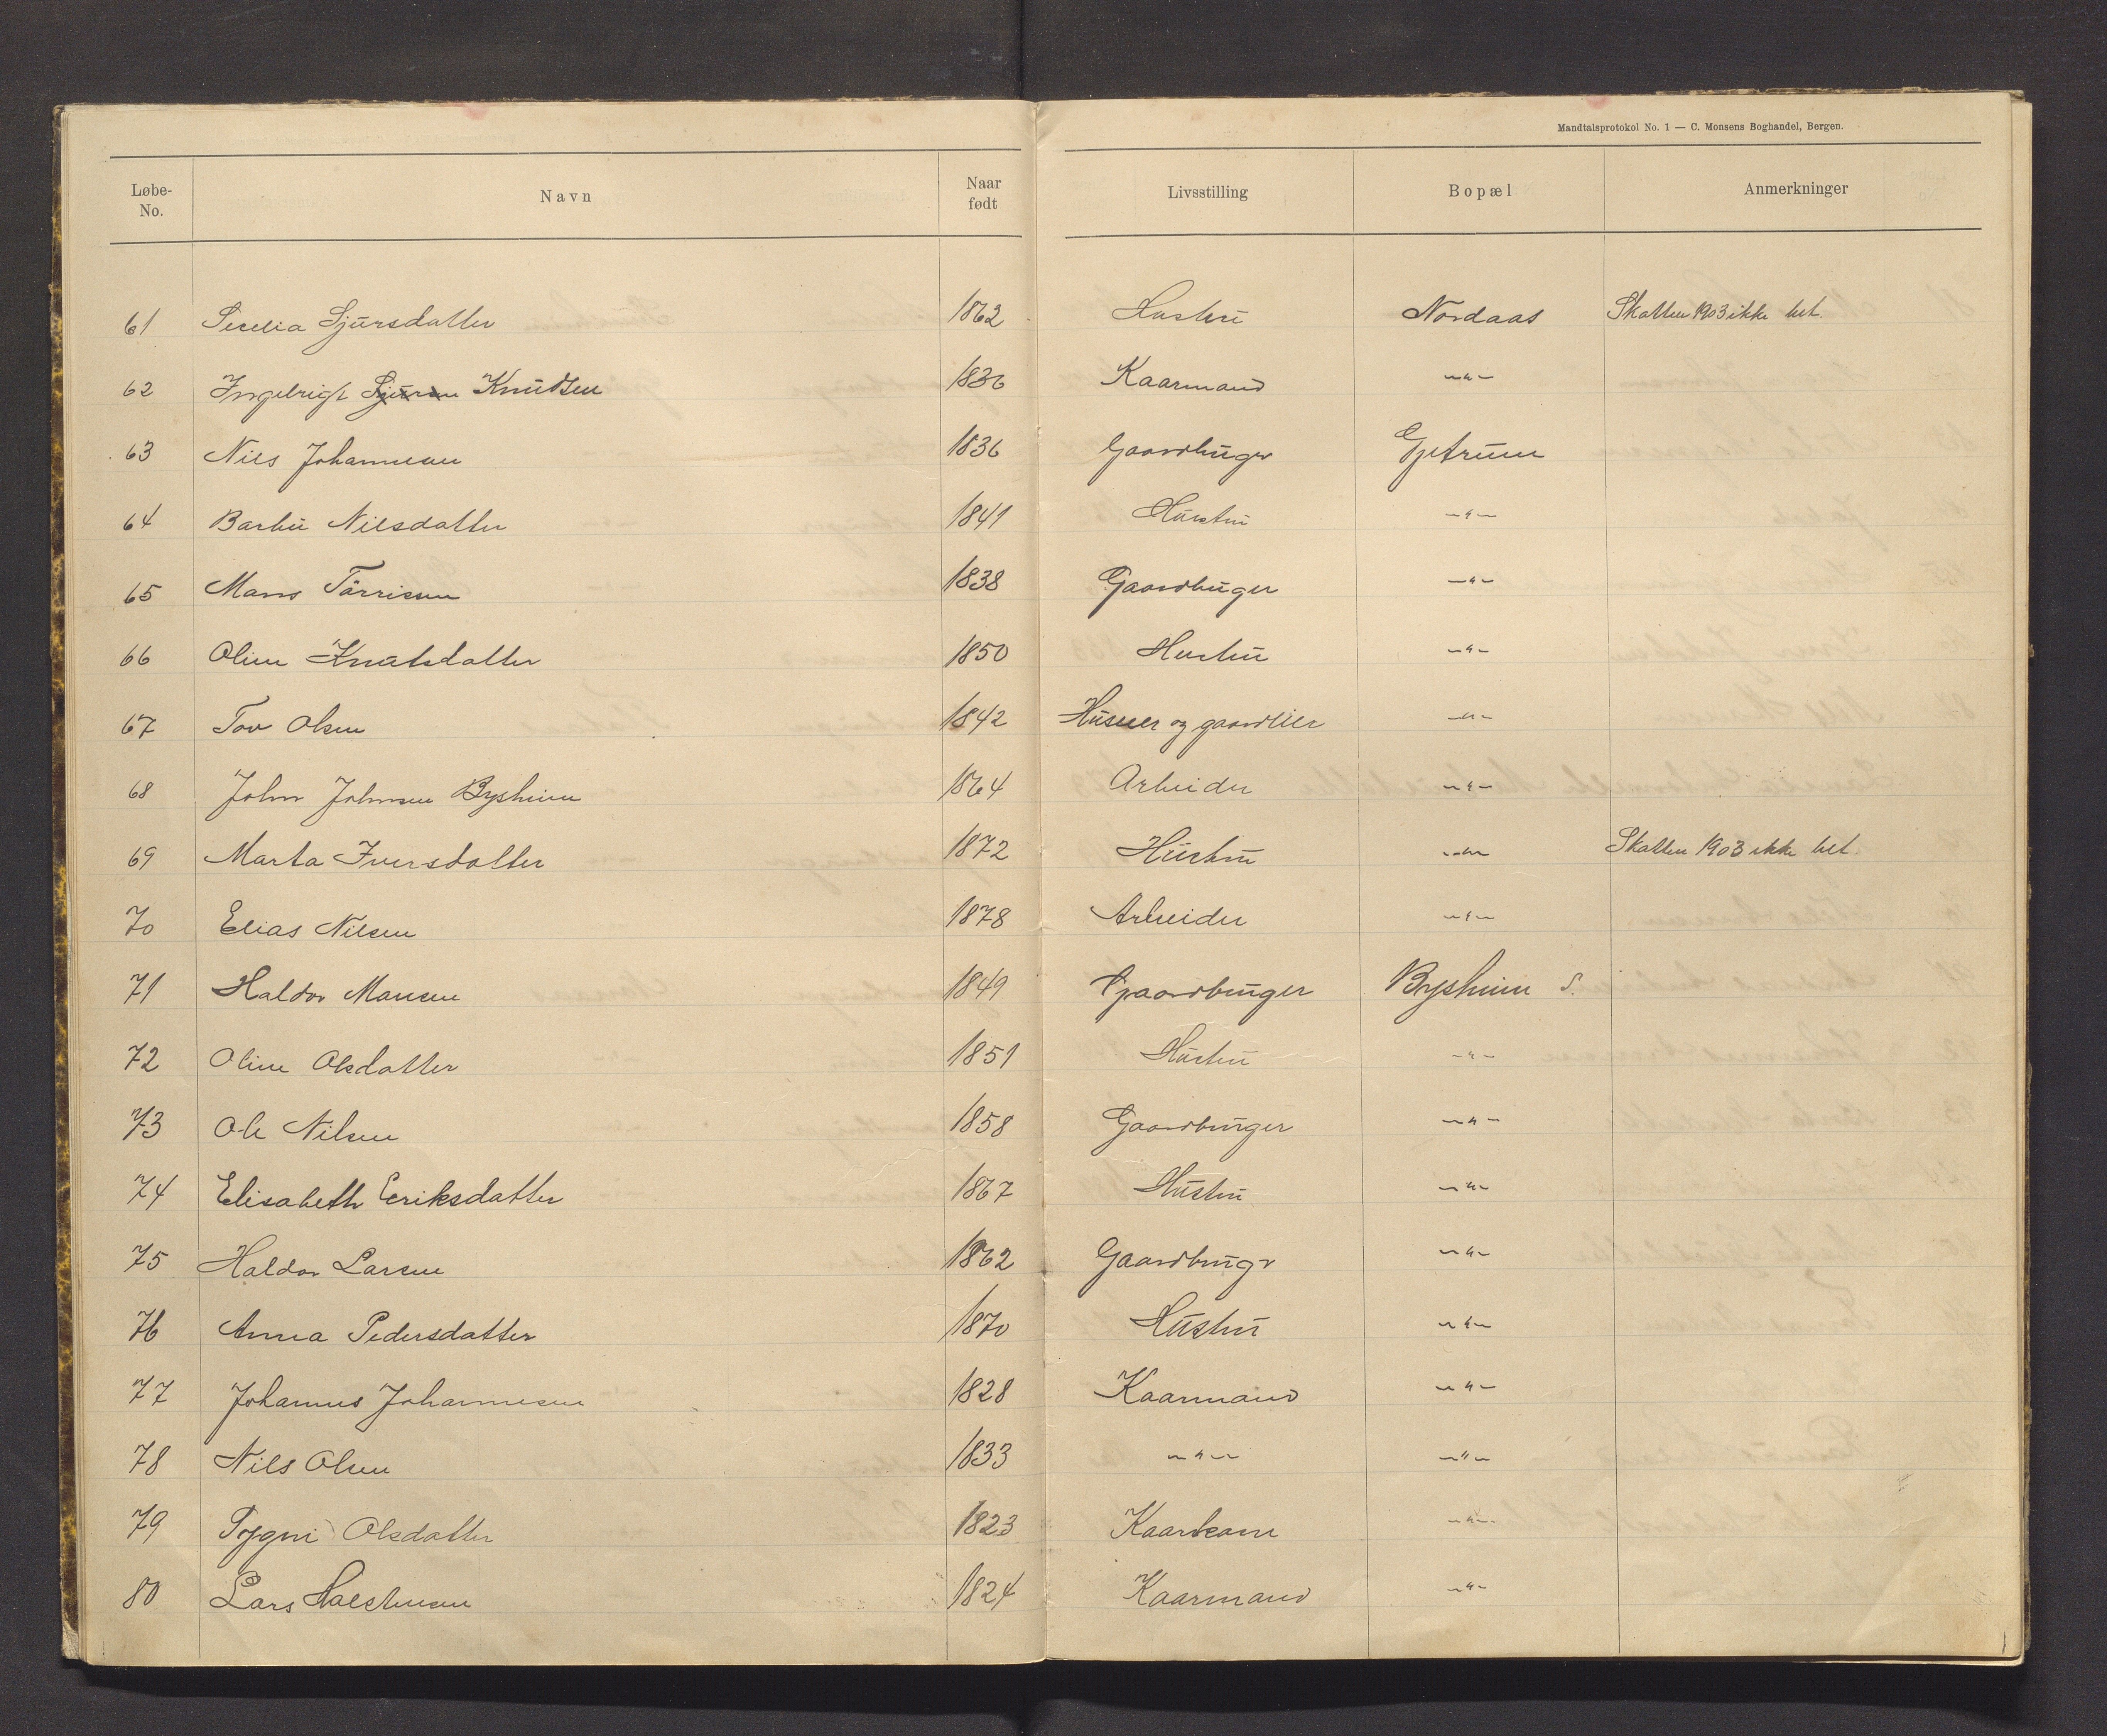 Mandtalsprotokol No. 1 — C. Monsens Boghandel, Bergen.
Løbe-No. Navn Naar født Livsstilling Bopæl Anmerkninger
61 Secelia Sjursdatter 1862 Hustru Nordaas Skatten 1903 ikke bet.
62 Ingebrigt Sjursen Knudsen 1836 Kaarmand -"-
63 Nils Johannesen 1836 Gaardbruger Gjetrum
64 Barbu Nilsdatter 1841 Hustru -"-
65 Mons Törrisen 1838 Gaardbruger -"-
66 Oline Knutsdatter 1850 Hustru -"-
67 Tov Olsen 1842 Husmer og -"-
68 John Johnsen Bysheim 1864 Arbeider -"-
69 Marta Iversdatter 1872 Hustru -"- Skatten 1903 ikke bet.
70 Elias Nilsen 1878 Arbeider -"-
71 Haldor Monsen 1849 Gaardbruger Bysheim S.
72 Oline Olsdatter 1851 Hustru -"-
73 Ole Nilsen 1858 Gaardbruger -"-
74 Elisabeth Eeriksdatter 1867 Hustru -"-
75 Haldor Larsen 1862 Gaardbrugr -"-
76 Anna Pedersdatter 1870 Hustru -"-
77 Johannes Johannesen 1828 Kaarmand -"-
78 Nils Olsen 1833 -"- -"-
79 Olsdatter 1823 Kaarkone -"-
80 Lars 1824 Kaarmand -"-